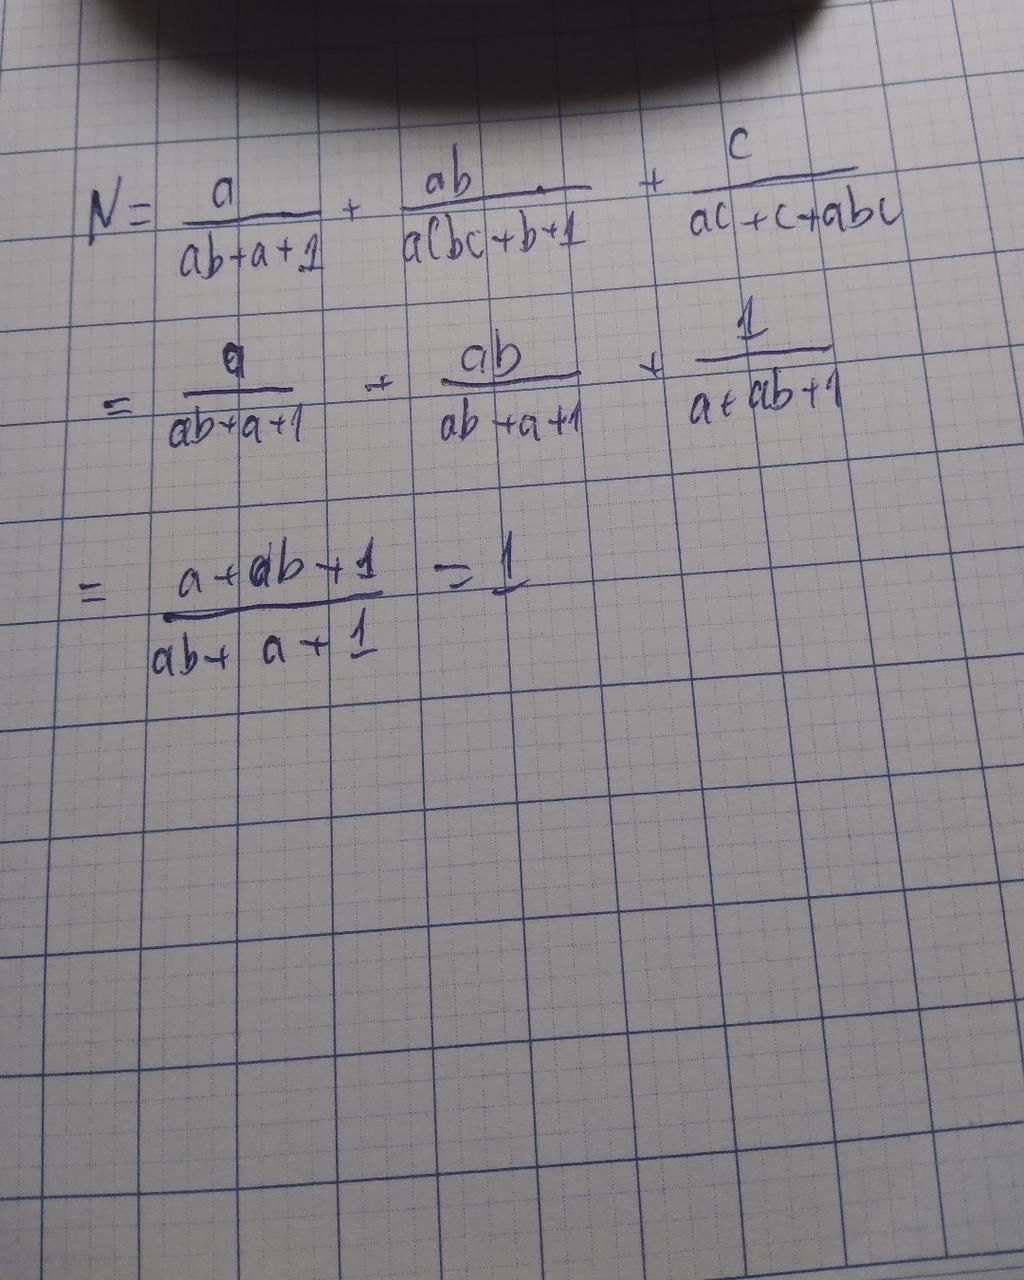 N = a/(ab+a+1) + ab/(a(bc+b+1) + c/(ac+c+abc)
= a/(ab+a+1) + ab/(ab+a+1) + 1/(a+ab+1)
= (a+ab+1)/(ab+a+1) = 1